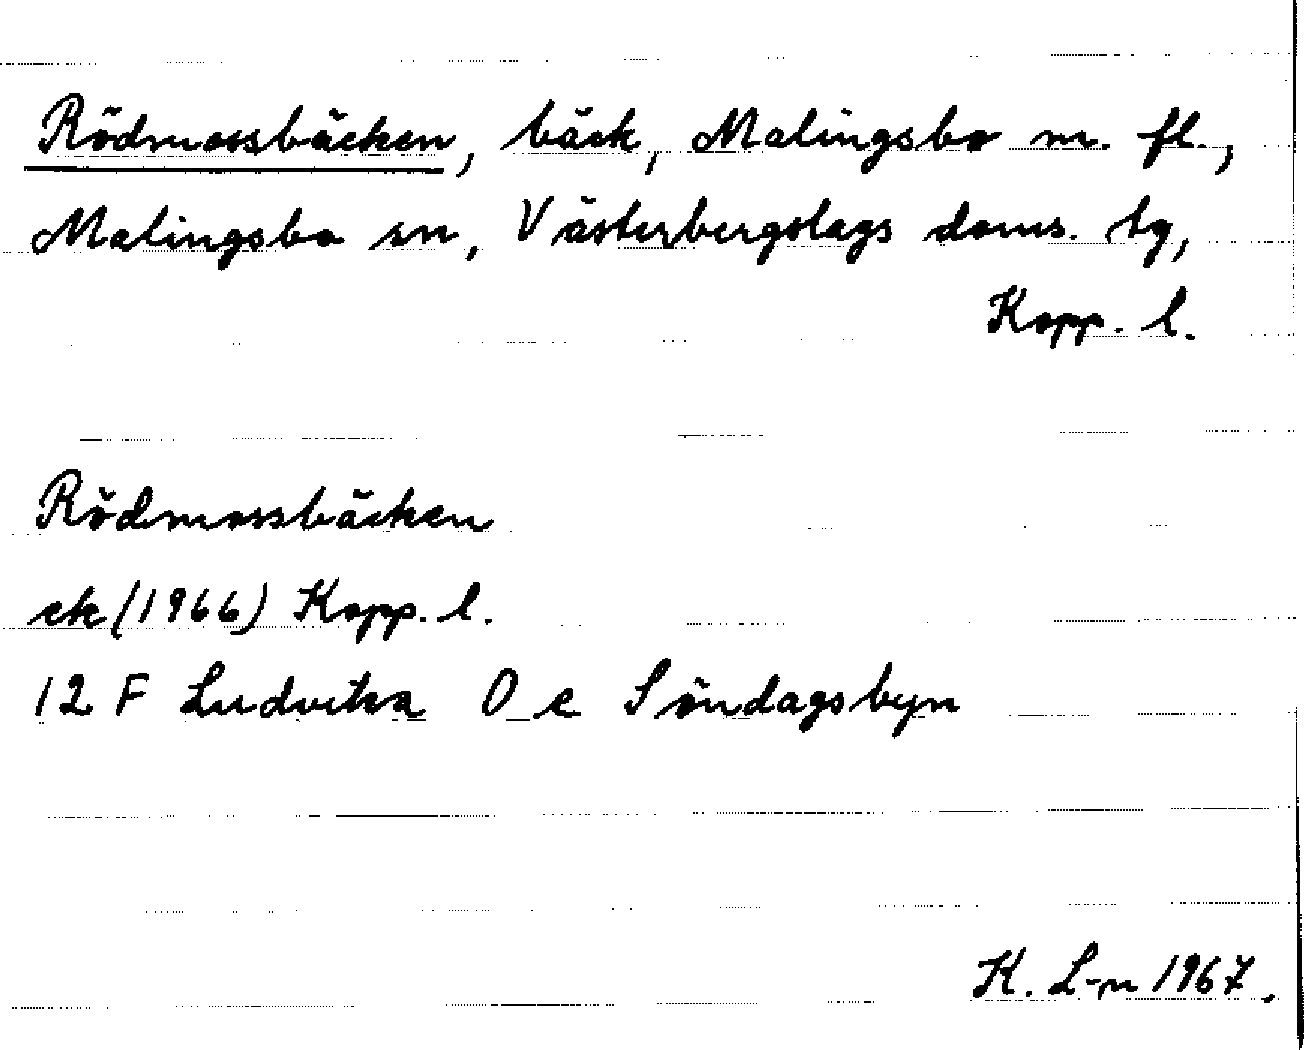 Rödmossbäcken, bäck, Malingsbo m. fl.,
Malingsbo sn, Västerbergslags doms. tg,
Kopp. l.
Rödmossbäcken
ek (1966) Kopp. l.
12 F Ludvika O e Söndagsbyn
K. L-n 1967.